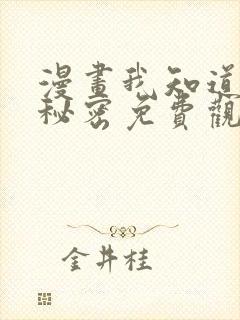 漫畫我知道
秘密免費觀
金井桂